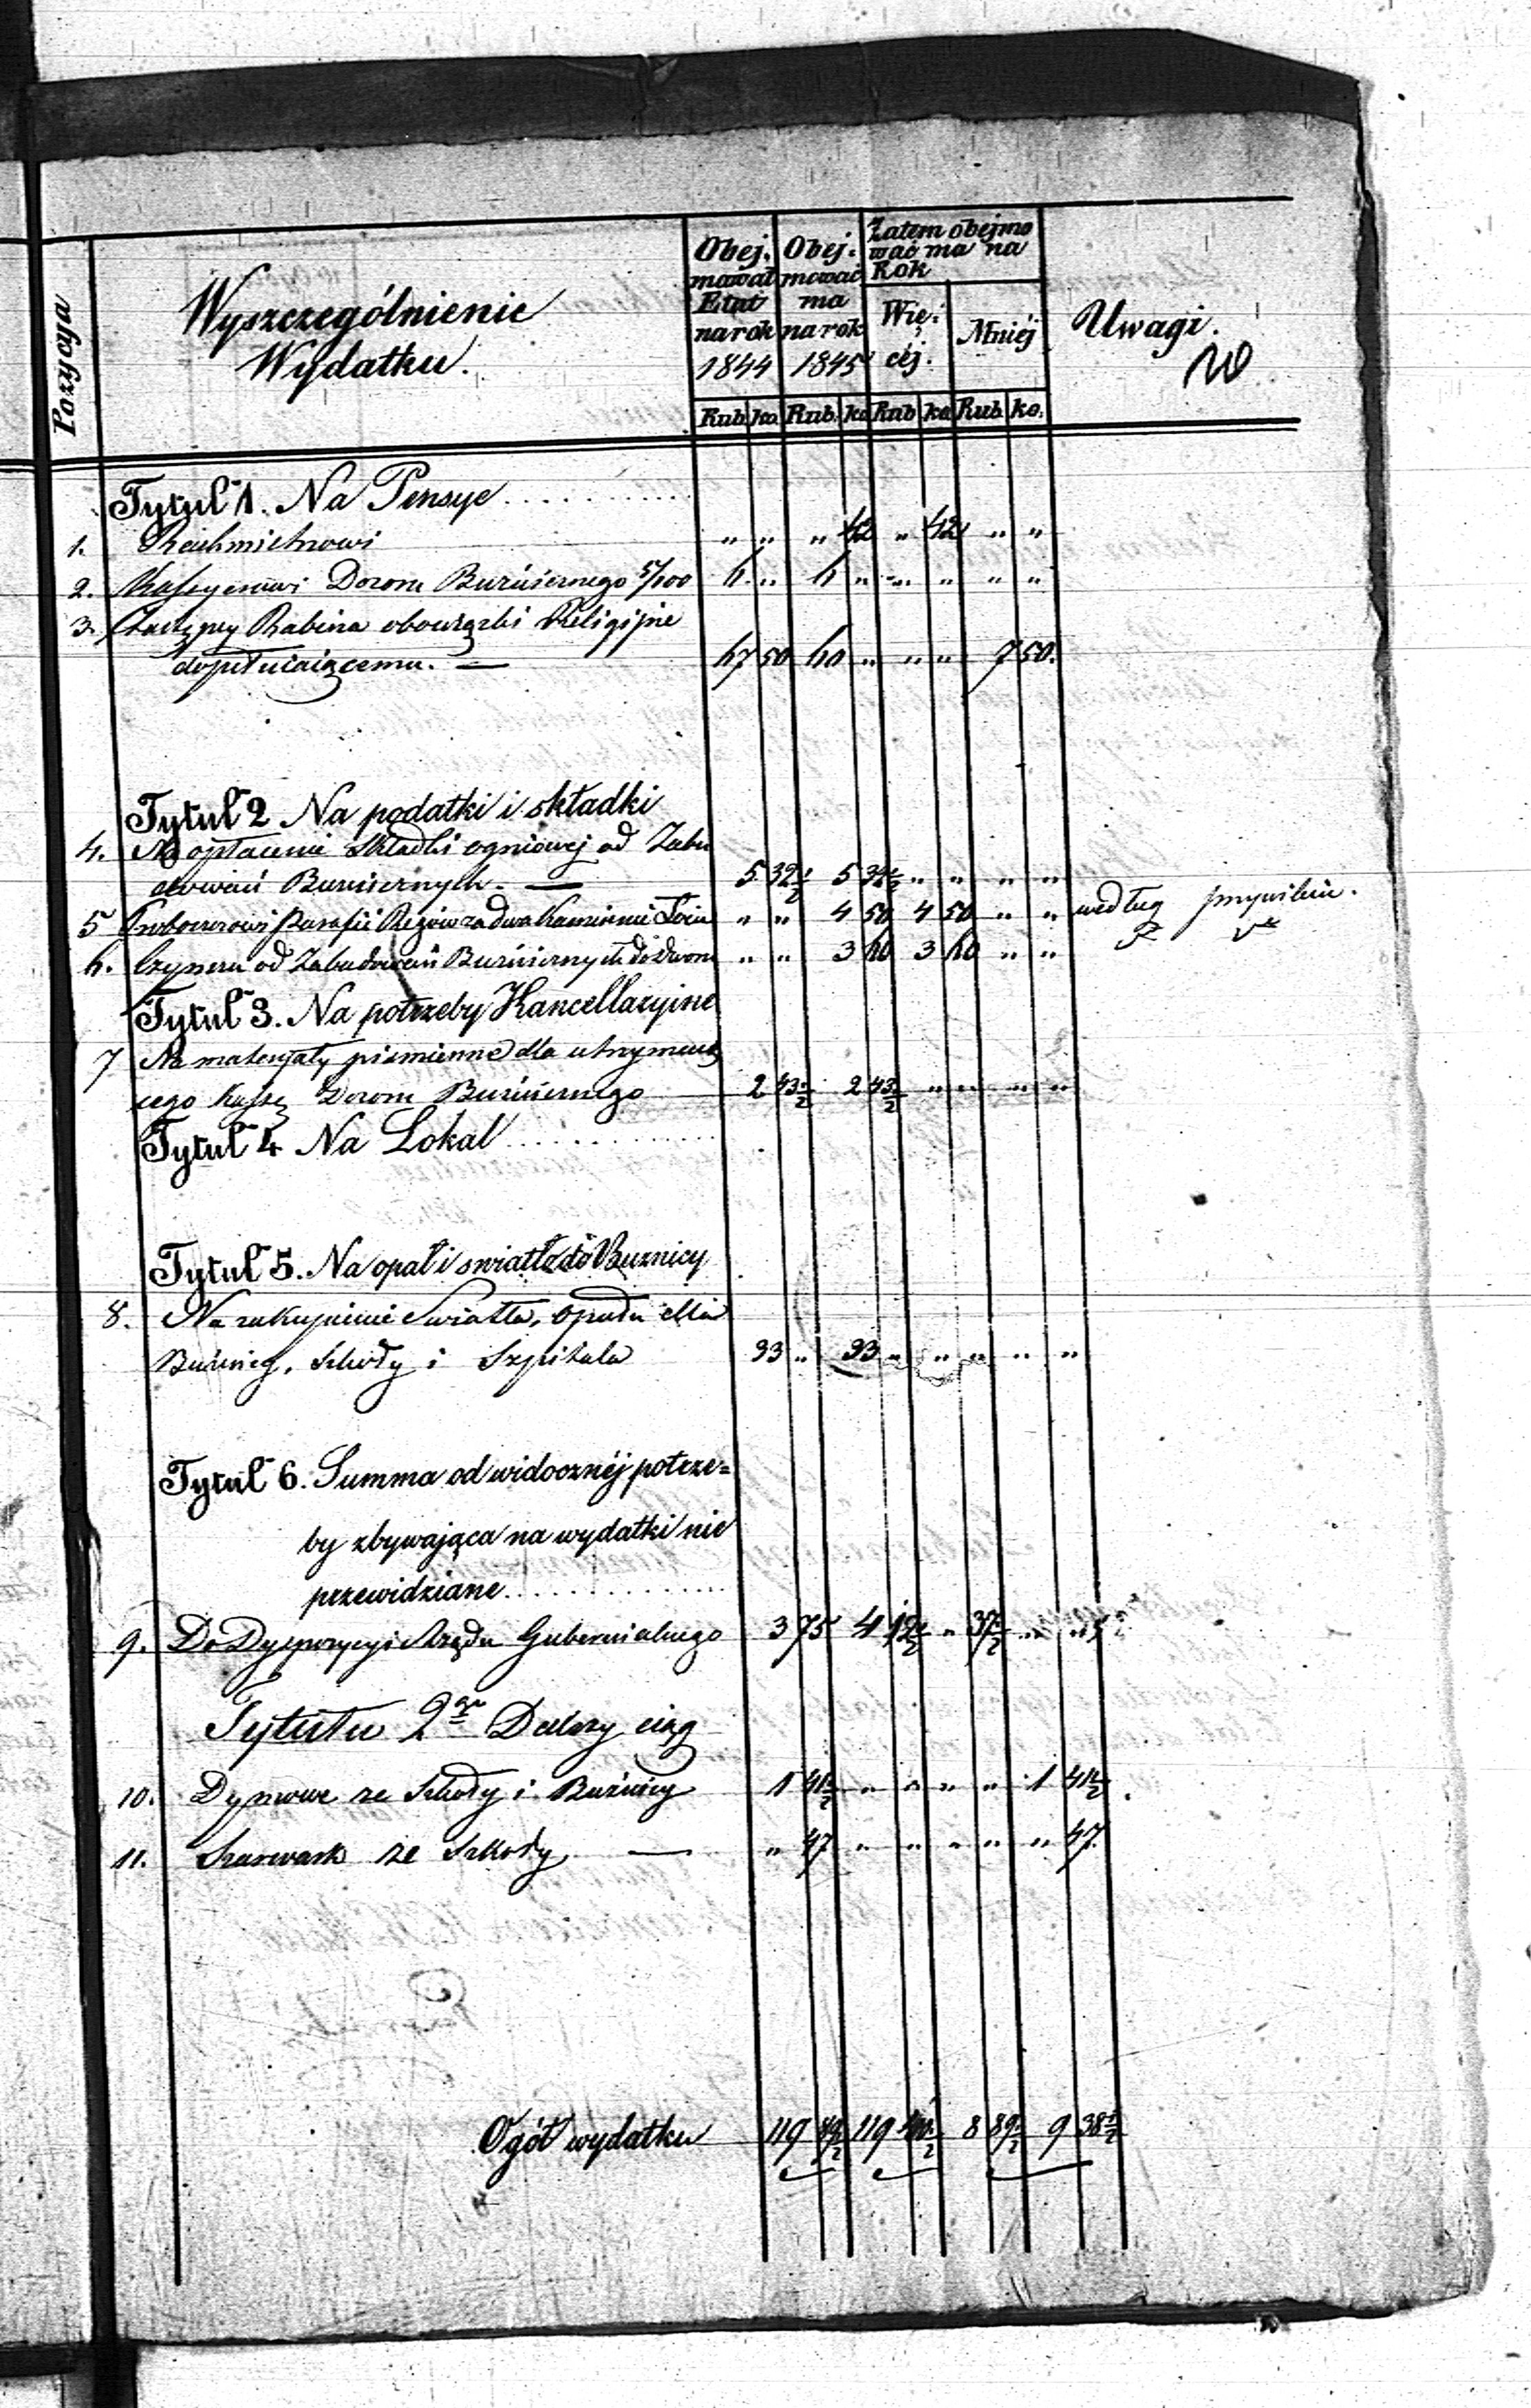 Pozycya
Wyszczególnienie
Wydatku.
Obej. mował Etat na rok 1844
Obej: mować ma na rok 1845
Zatem obejmo wać ma na Rok
Wię: céj.
Mniéj
Uwagi.
Rub. ko. Rub. ko Rub ko Rub ko.
Tytuł 1. Na Pensye
1. " " " 42 " 42 " "
2. Kassyerowi Dozoru Bużnicznego 5/100 6 " 6 " " " " "
3. Zastępcy Rabina obowiązki Religijne
dopełniaiącemu. — 67 50 60 " " " 7 50.
Tytuł 2. Na podatki i składki
4. Na opłacenie Składki ogniowej od Zabu
dowań Bużnicznych. — 5 32½ 5 32½ " " " "
5 Proboszczowi Parafii za dwa Kamienie Łoiu " " 4 50 4 50 " " według przywileiu.
6. Czynszu od Zabudowań Bużnicznych do Dworu " " 3 60 3 60 " "
Tytuł 3. Na potrzeby Kancellaryine
7 Na materyały piśmienne dla utrzymuią
cego Kassę Dozoru Bużnicznego 2 43½ 2 43½ " " " "
Tytuł 4 Na Lokal
Tytuł 5. Na opał i swiatło do Buznicy
8. Na zakupienie Swiatła, opału dla
Bużnicy, Szkoły i Szpitala 33 " 33 " " " " "
Tytuł 6. Summa od widocznéj potrze=
by zbywająca na wydatki nie
przewidziane
9. Do Dyspozycyi Rządu Gubernialnego 3 75 4 12½ " 37½ " "
Tytułu 2go Dalszy ciąg
10. Dymowe ze Szkoły i Bużnicy 1 41½ " " " " 1 41½
11. Szarwark ze Szkoły — " 47 " " " " " 47.
Ogół wydatku 119 89½ 119 8 89½ 9 38½